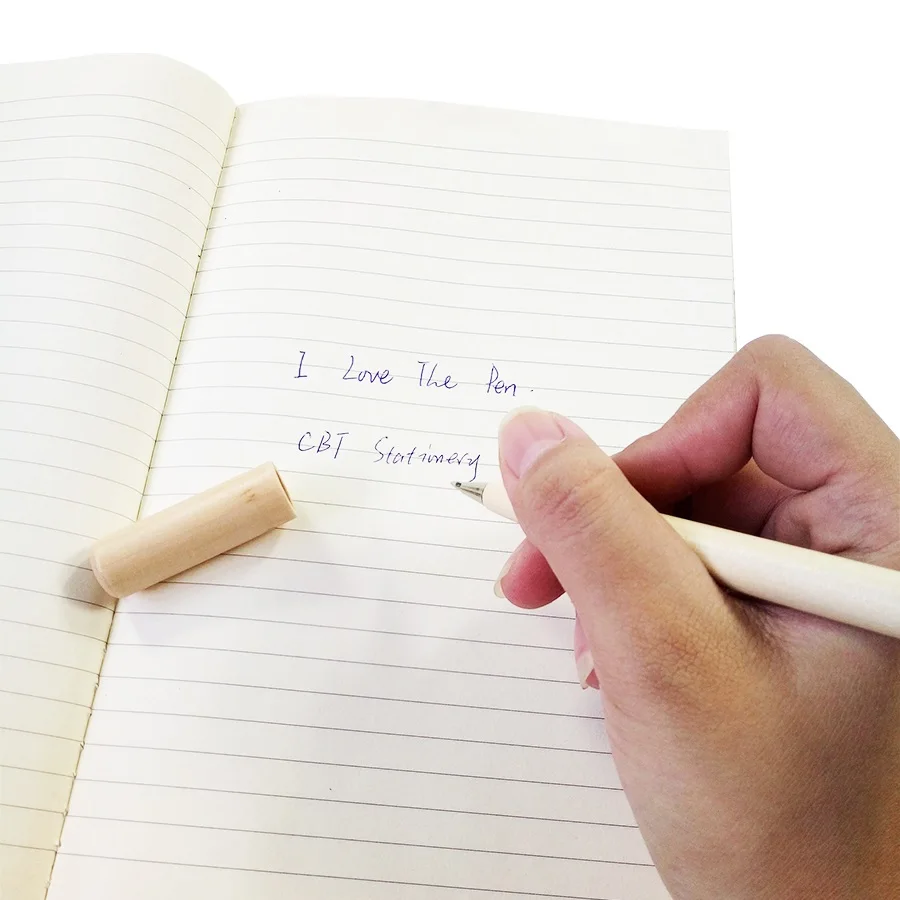 I Love The Pen.
CBT Stationery